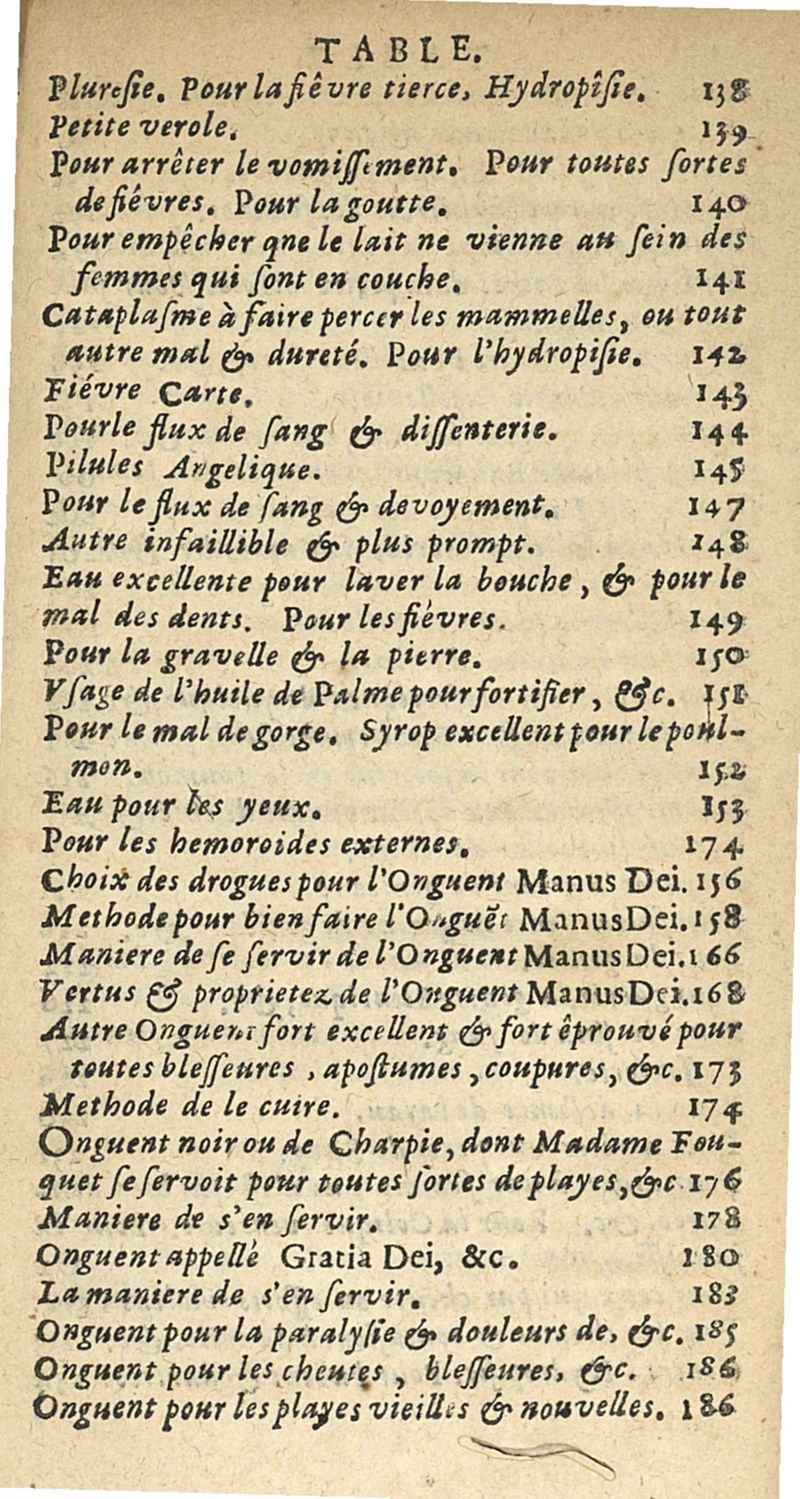 TABLE.
Pluresie. Pour la fiêvre tierce, Hydropîsie. 138
Petite verole. 139
Pour arrêter le vomissement. Pour toutes sortes
de fiêvres. Pour la goutte. 140
Pour empêcher qne le lait ne vienne au sein des
femmes qui sont en couche. 141
Cataplasme à faire percer les mammelles, ou tout
autre mal & dureté. Pour l'hydropisie. 142
Fiévre Carte. 143
Pour le flux de sang & dissenterie. 144
Pilules Angelique. 145
Pour le flux de sang & devoyement. 147
Autre infaillible & plus prompt. 148
Eau excellente pour laver la bouche, & pour le
mal des dents. Pour les fiévres. 149
Pour la gravelle & la pierre. 150
Vsage de l'huile de Palme pour fortifier, &c. 151
Pour le mal de gorge. Syrop excellent pour le poul-
mon. 152
Eau pour les yeux. 153
Pour les hemoroides externes. 174
Choix des drogues pour l'Onguent Manus Dei. 156
Methode pour bien faire l'Onguẽt Manus Dei. 158
Maniere de se servir de l'Onguent Manus Dei. 166
Vertus & proprietez de l'Onguent Manus Dei. 168
Autre Onguent fort excellent & fort êprouvé pour
toutes blesseures, apostumes, coupures, &c. 173
Methode de le cuire. 174
Onguent noir ou de Charpie, dont Madame Fou-
quet se servoit pour toutes sortes de playes, &c 176
Maniere de s'en servir. 178
Onguent appellé Gratia Dei, &c. 180
La maniere de s'en servir. 183
Onguent pour la paralysie & douleurs de, &c. 185
Onguent pour les cheutes, blesseures, &c. 186
Onguent pour les playes vieilles & nouvelles. 186